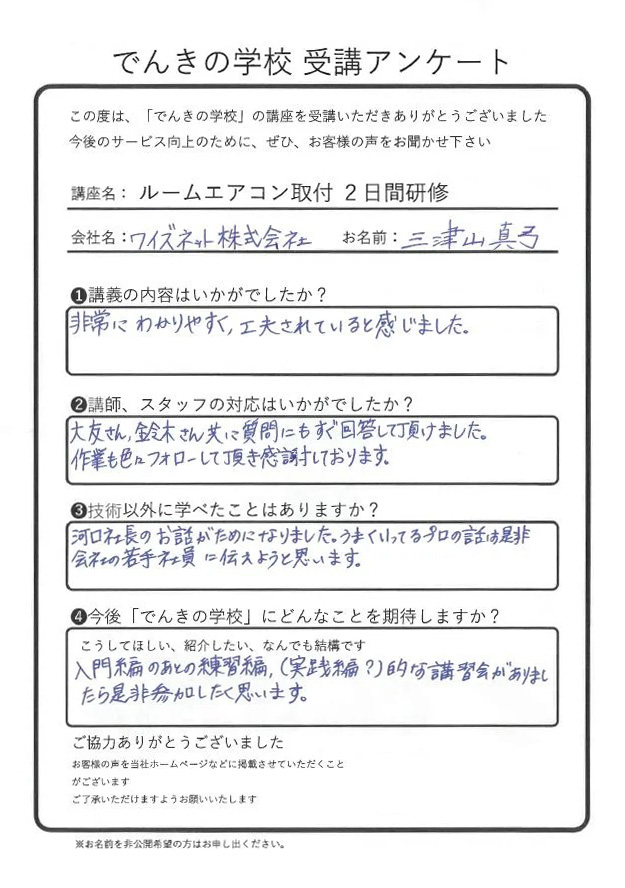 でんきの学校 受講アンケート
この度は、「でんきの学校」の講座を受講いただきありがとうございました
今後のサービス向上のために、ぜひ、お客様の声をお聞かせ下さい
講座名： ルームエアコン取付 2日間研修
会社名：ワイズネット株式会社 お名前：三津山真弓
❶講義の内容はいかがでしたか？
非常に わかりやすく, 工夫されていると感じました。
❷講師、スタッフの対応はいかがでしたか？
大友さん, 鈴木さん共に質問にもすぐ回答して頂けました。
作業も色々フォローして頂き感謝しております。
❸技術以外に学べたことはありますか？
河口社長のお話がためになりました。うまくいってるプロの話は是非
会社の若手社員に伝えようと思います。
❹今後「でんきの学校」にどんなことを期待しますか？
こうしてほしい、紹介したい、なんでも結構です
入門編のあとの練習編, (実践編？)的な講習会がありまし
たら是非参加したく思います。
ご協力ありがとうございました
お客様の声を当社ホームページなどに掲載させていただくこと
がございます
ご了承いただけますようお願いいたします
※お名前を非公開希望の方はお申し出ください。